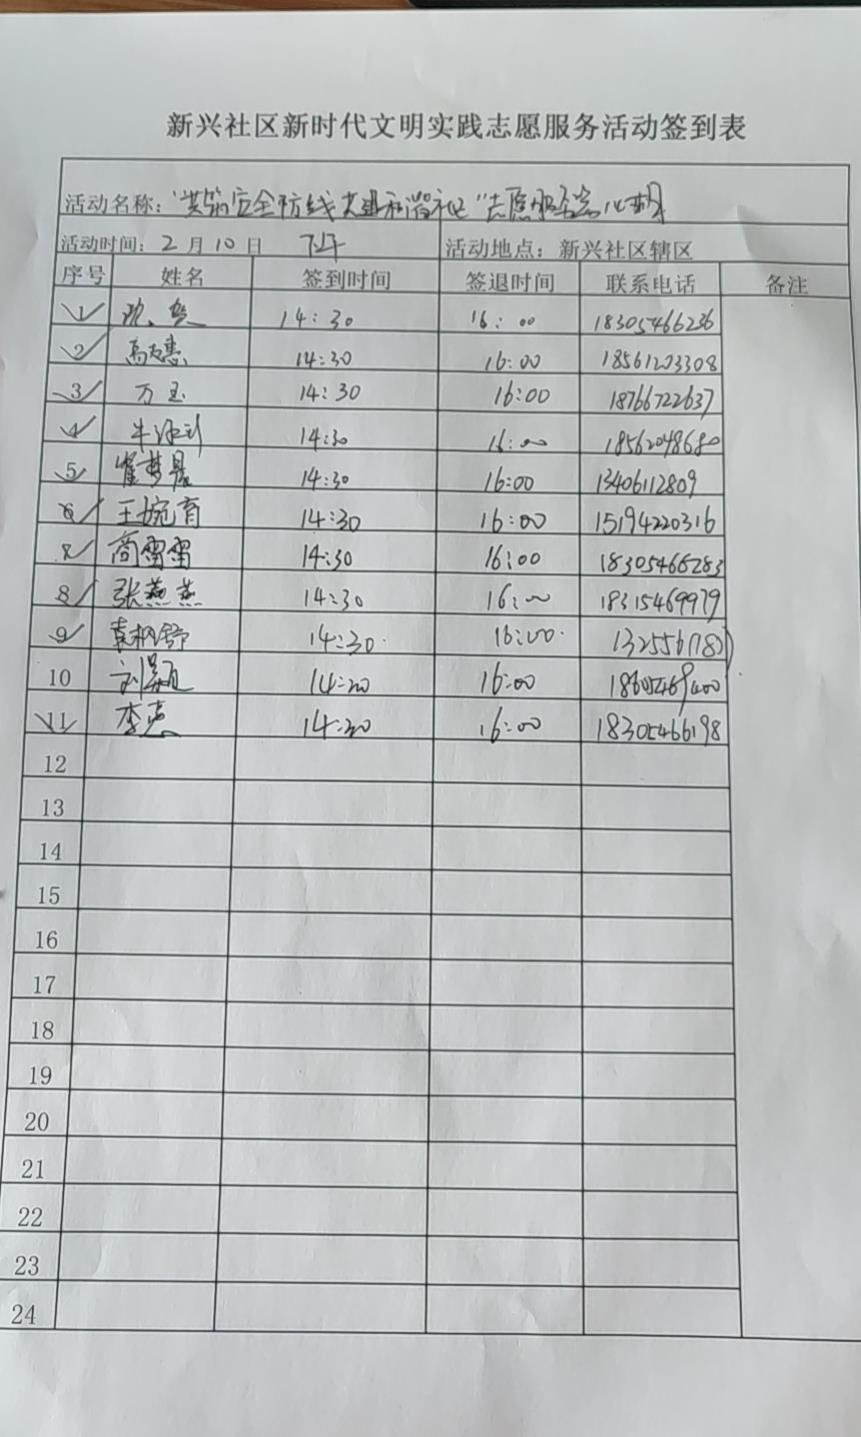 新兴社区新时代文明实践志愿服务活动签到表
活动名称："共筑安全防线 共建和谐社区"志愿服务
活动时间：2月10日 下午 活动地点：新兴社区辖区
序号 姓名 签到时间 签退时间 联系电话 备注
1 14:30 16:00 18305466236
2 14:30 16:00 18561203308
3 万玉 14:30 16:00 18766722637
4 14:30 16:00 18562048680
5 崔梦晨 14:30 16:00 13406112809
6 王婉育 14:30 16:00 15194220316
7 商雷雷 14:30 16:00 18305466283
8 张燕燕 14:30 16:00 18315469979
9 袁枫舒 14:30 16:00
10 刘颖 14:30 16:00
11 李惠 14:30 16:00 18305466198
12
13
14
15
16
17
18
19
20
21
22
23
24